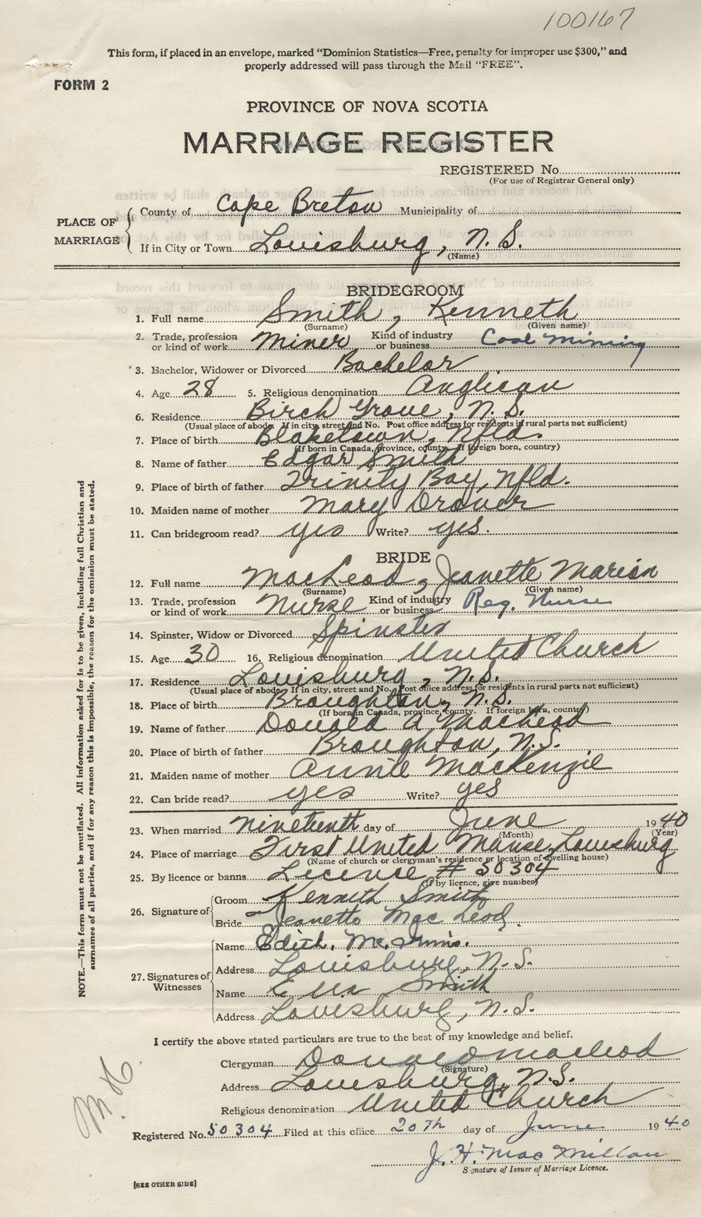 100167
This form, if placed in an envelope, marked "Dominion Statistics—Free, penalty for improper use $300," and
properly addressed will pass through the Mail "FREE".
FORM 2
PROVINCE OF NOVA SCOTIA
MARRIAGE REGISTER
REGISTERED No.
(For use of Registrar General only)
PLACE OF MARRIAGE
County of Cape Breton Municipality of
If in City or Town Louisburg, N.S.
(Name)
BRIDEGROOM
1. Full name Smith, Kenneth
(Surname) (Given name)
2. Trade, profession or kind of work Miner Kind of industry or business Coal Mining
3. Bachelor, Widower or Divorced Bachelor
4. Age 28 5. Religious denomination Anglican
6. Residence Birch Grove, N.S.
(Usual place of abode. If in city, street and No. Post office address for residents in rural parts not sufficient)
7. Place of birth Blaketown, Nfld.
(If born in Canada, province, county. If foreign born, country)
8. Name of father Edgar Smith
9. Place of birth of father Trinity Bay, Nfld.
10. Maiden name of mother Mary Drover
11. Can bridegroom read? yes Write? yes.
BRIDE
12. Full name MacLeod, Jeanette Marion
(Surname) (Given name)
13. Trade, profession or kind of work Nurse Kind of industry or business Reg. Nurse
14. Spinster, Widow or Divorced Spinster
15. Age 30 16. Religious denomination United Church
17. Residence Louisburg, N.S.
(Usual place of abode. If in city, street and No. Post office address for residents in rural parts not sufficient)
18. Place of birth Broughton, N.S.
(If born in Canada, province, county. If foreign born, country)
19. Name of father Donald A MacLeod
20. Place of birth of father Broughton, N.S.
21. Maiden name of mother Annie MacKenzie
22. Can bride read? yes Write? yes
23. When married Nineteenth day of June 1940
(Month) (Year)
24. Place of marriage First United Manse, Louisburg
(Name of church or clergyman's residence or location of dwelling house)
25. By licence or banns License # 50304
(If by licence, give number)
26. Signature of
Groom Kenneth Smith
Bride Jeanette MacLeod.
27. Signatures of Witnesses
Name Edith.
Address Louisburg, N.S.
Name Smith
Address Louisburg, N.S.
I certify the above stated particulars are true to the best of my knowledge and belief.
Clergyman Donald Macleod
(Signature)
Address Louisburg, N.S.
Religious denomination United Church
Registered No. 50304 Filed at this office 20th day of June 1940
J. H. MacMillan
Signature of Issuer of Marriage Licence.
[SEE OTHER SIDE]
NOTE.—This form must not be mutilated. All information asked for is to be given, including full Christian and
surnames of all parties, and if for any reason this is impossible, the reason for the omission must be stated.